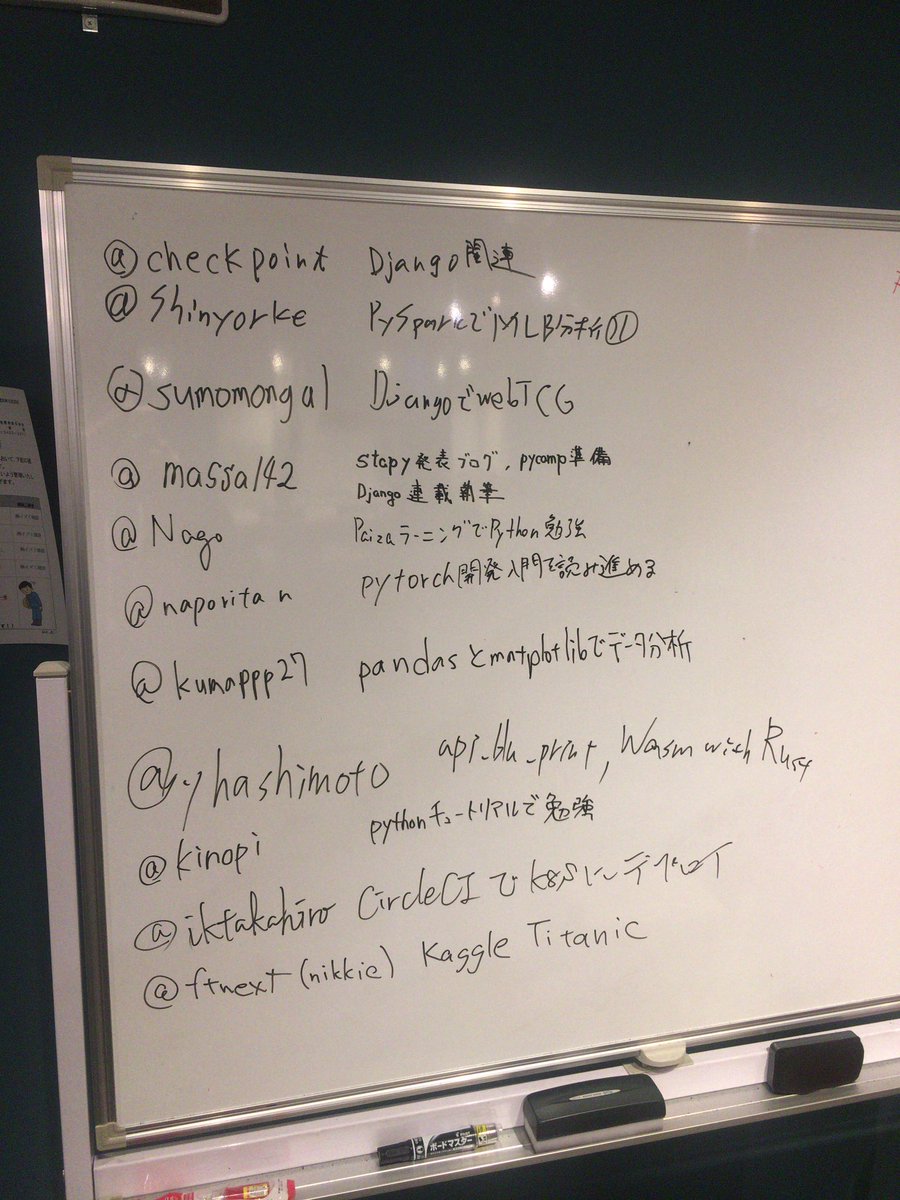 @checkpoint Django関連
@shinyorke PySparkでMLB分析
@sumomongal DjangoでwebTCG
@massa142 stapy発表ブログ, pycamp準備
Django連載執筆
@Nago PaizaラーニングでPython勉強
@naporitan pytorch開発入門を読み進める
@kumappp27 pandasとmatplotlibでデータ分析
@yhashimoto api_blu_print, Wasm with Rust
@kinopi pythonチュートリアルで勉強
@iktakahiro CircleCIでk8sにデプロイ
@ftnext (nikkie) Kaggle Titanic
ボードマスター